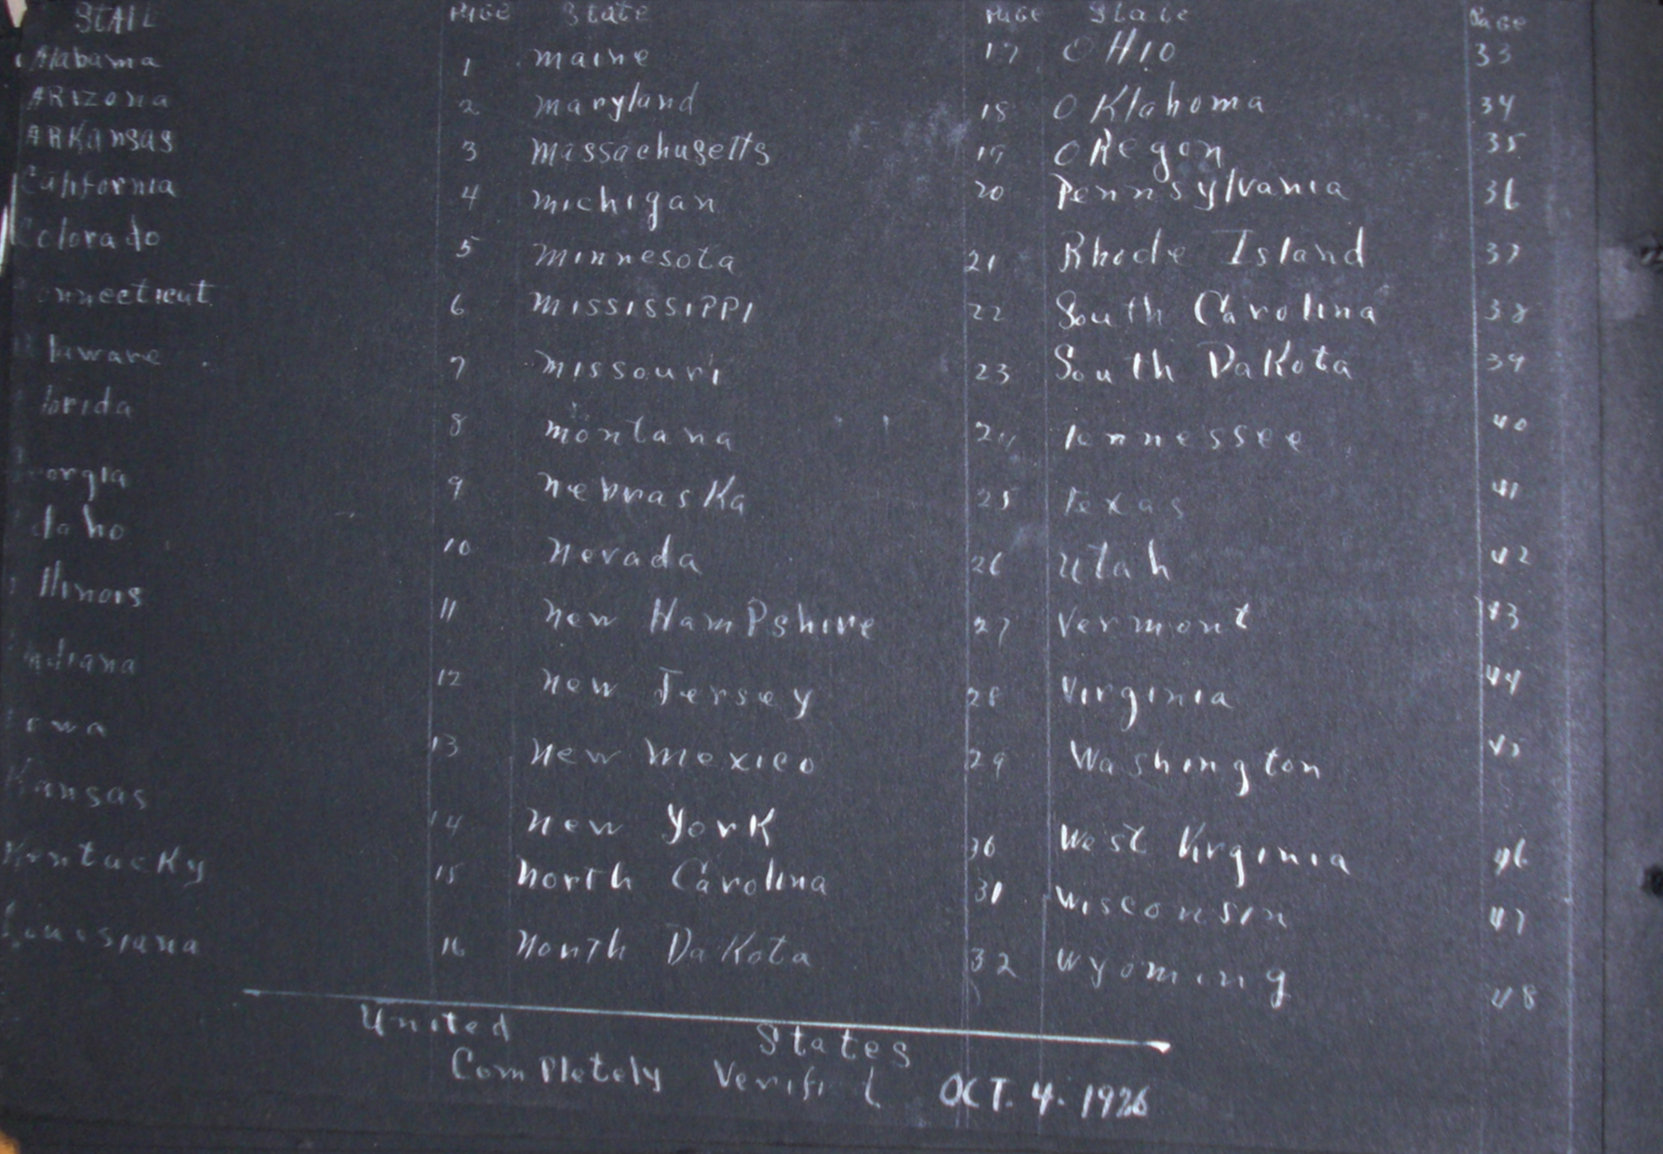 STATE PAGE State PAGE State Page
Alabama 1 maine 17 OHIO 33
ARIZona 2 maryland 18 OKlahoma 34
ARKansas 3 massachusetts 19 ORegon 35
California 4 michigan 20 Pennsylvania 36
Colorado 5 minnesota 21 Rhode Island 37
Connecticut 6 mississippi 22 South Carolina 38
Delaware 7 missouri 23 South DaKota 39
Florida 8 montana 24 Tennessee 40
Georgia 9 nebrasKa 25 Texas 41
Idaho 10 nevada 26 Utah 42
Illinois 11 new HamPshire 27 Vermont 43
Indiana 12 new Jersey 28 Virginia 44
Iowa 13 new mexico 29 Washington 45
Kansas 14 new YorK 30 West Virginia 46
KentucKy 15 north Carolina 31 Wisconsin 47
Louisiana 16 north DaKota 32 Wyoming 48
United States
ComPletely Verified OCT. 4. 1926